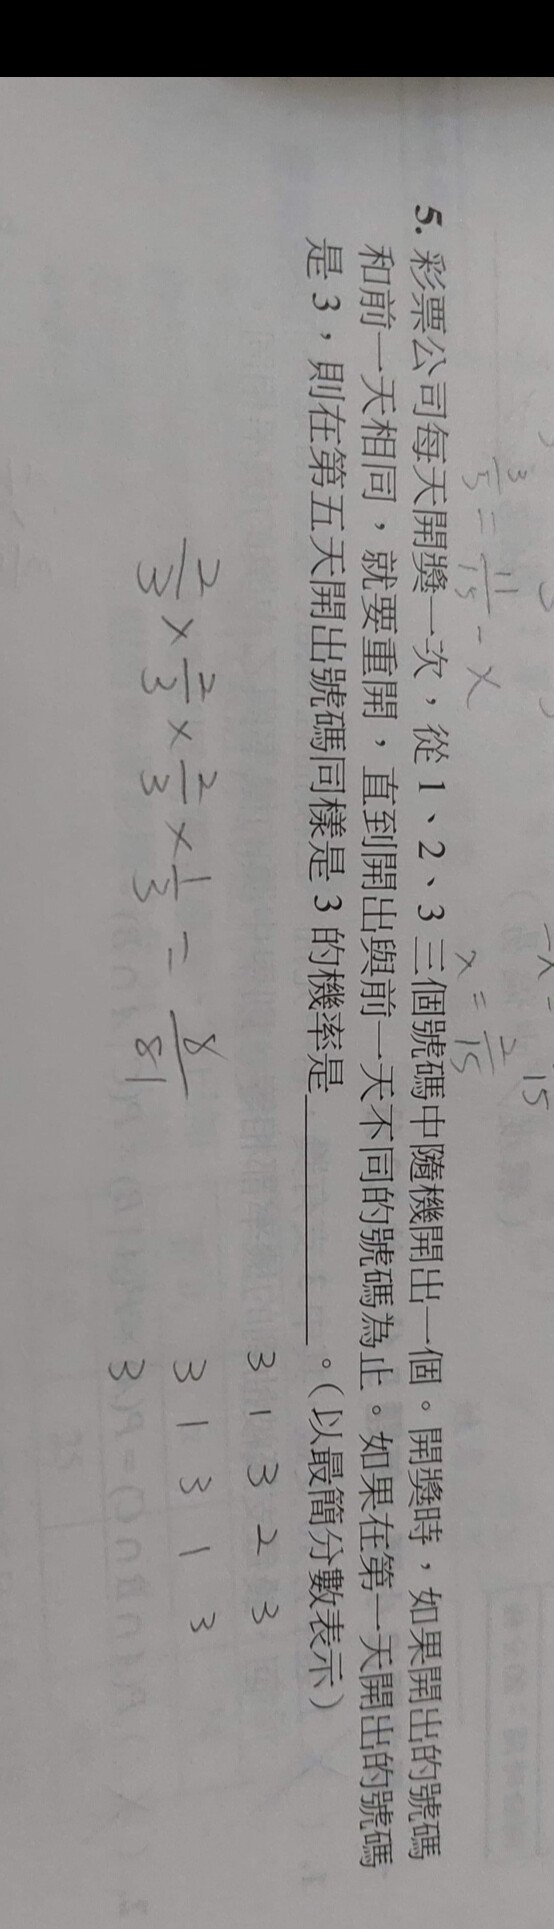 3/5 = 11/15 - x
x = 2/15
15
5. 彩票公司每天開獎一次，從 1、2、3 三個號碼中隨機開出一個。開獎時，如果開出的號碼
和前一天相同，就要重開，直到開出與前一天不同的號碼為止。如果在第一天開出的號碼
是 3，則在第五天開出號碼同樣是 3 的機率是______。（以最簡分數表示）
2/3 × 2/3 × 2/3 × 1/3 = 8/81
3 1 3 2 3
3 1 3 1 3
3